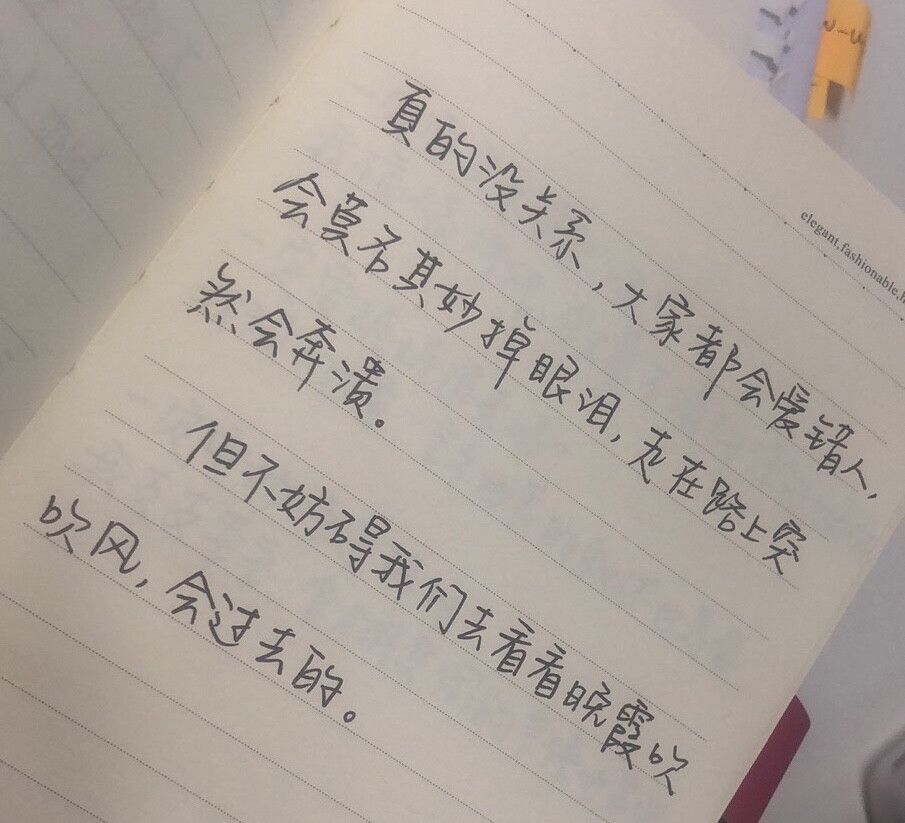 elegant,fashionable,h
真的没关系,大家都会爱错人,
会莫名其妙掉眼泪,走在路上突
然会奔溃。
但不妨碍我们去看看晚霞吹
吹风,会过去的。